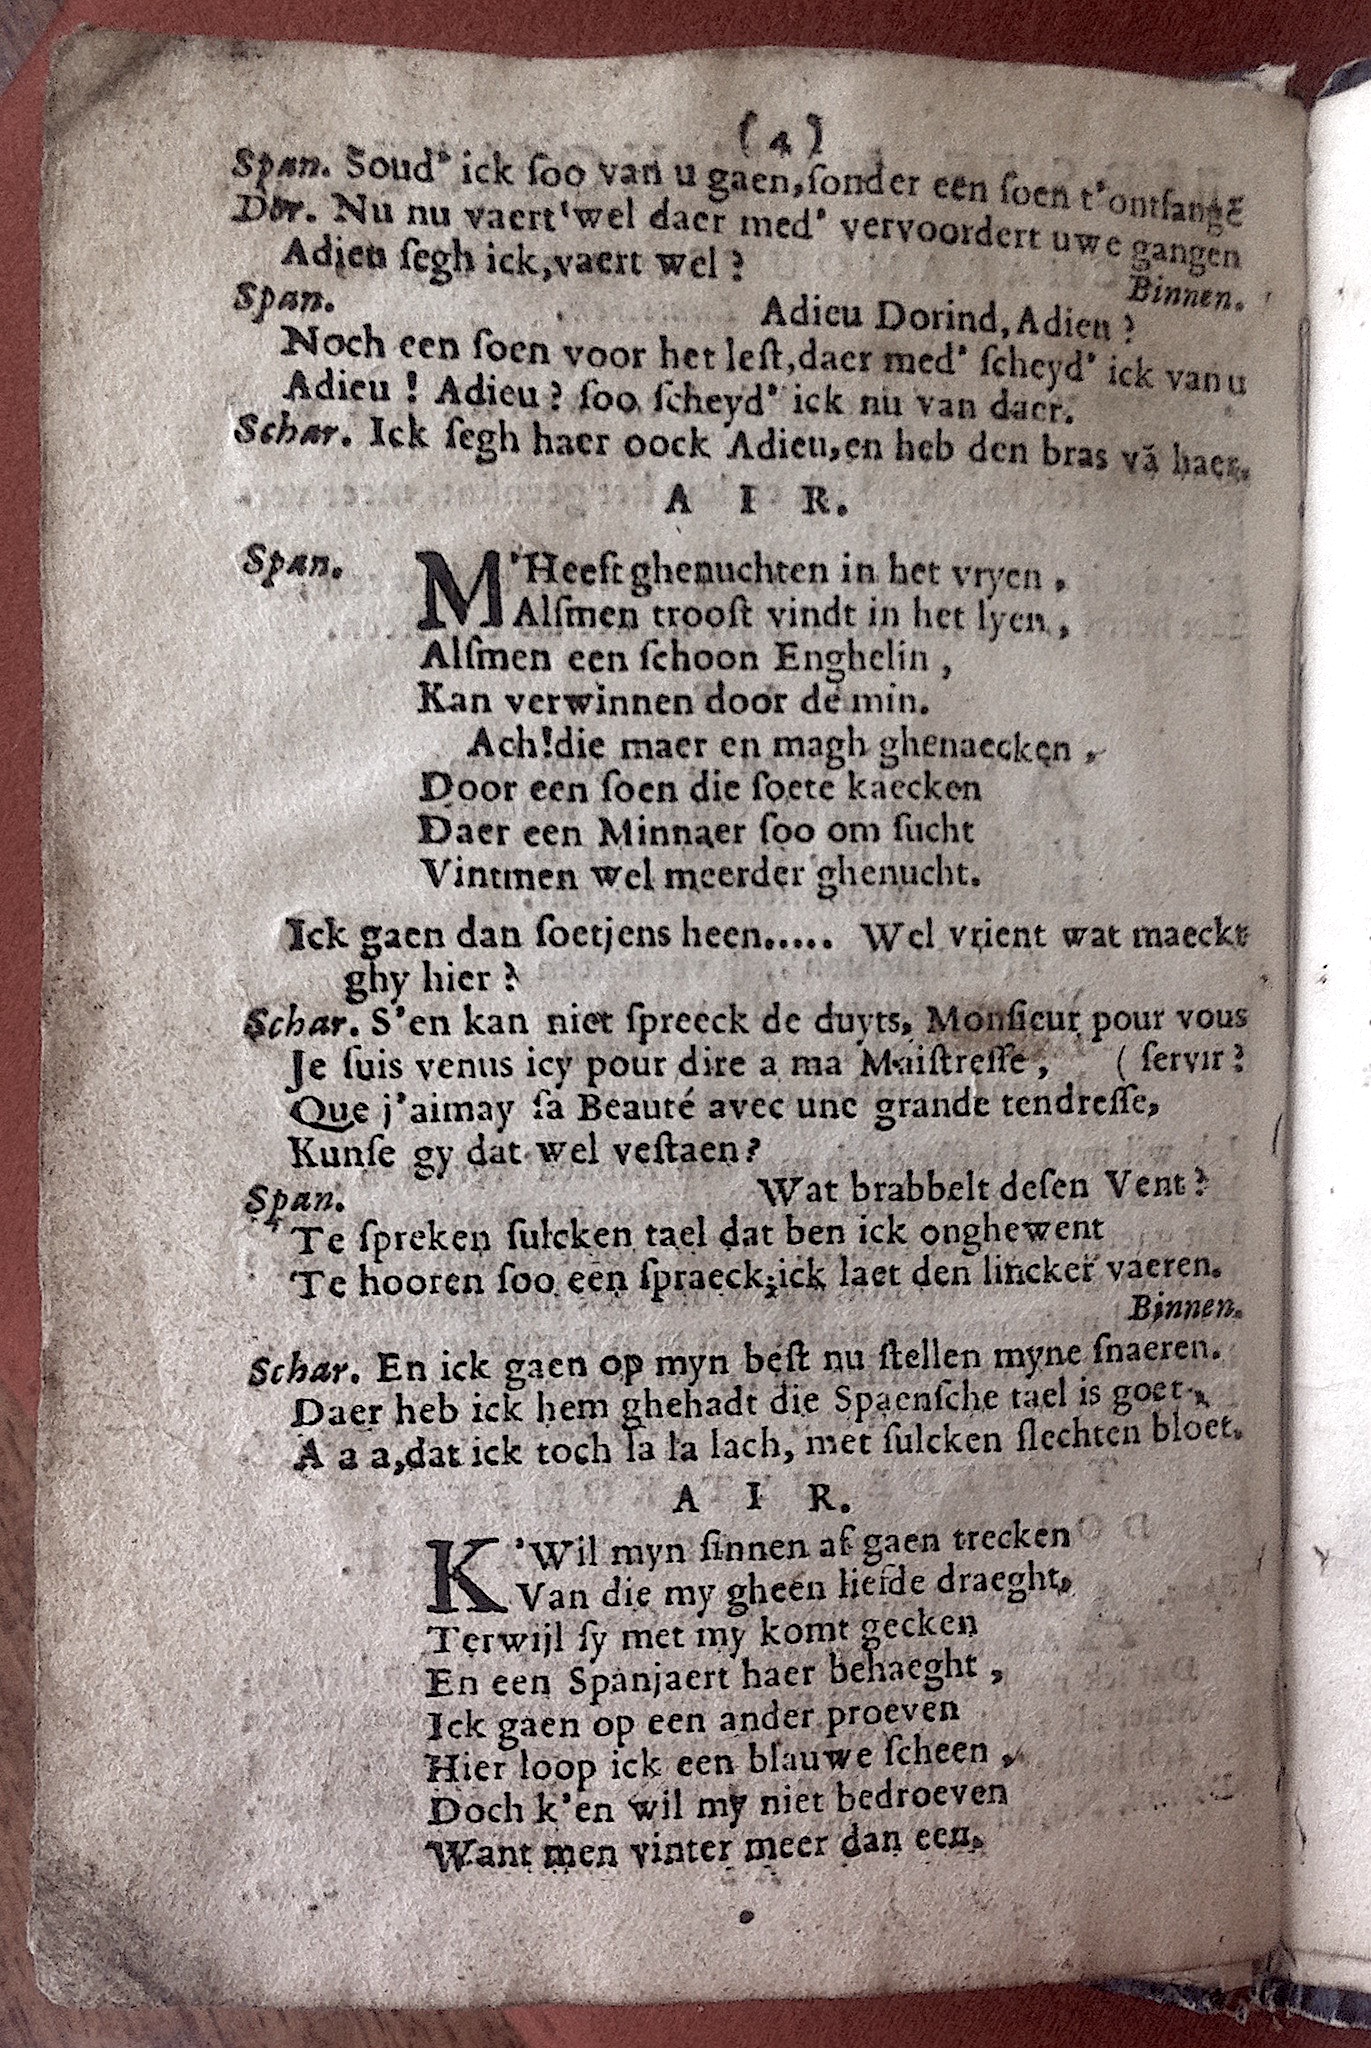 (4)
Span. Soud' ick ſoo van u gaen, ſonder een ſoen t'ontfangẽ
Dor. Nu nu vaert wel daer med' vervoordert uwe gangen
Adieu ſegh ick, vaert wel?
Binnen.
Span. Adieu Dorind, Adieu?
Noch een ſoen voor het leſt, daer med' ſcheyd' ick van u
Adieu! Adieu? ſoo ſcheyd' ick nu van daer.
Schar. Ick ſegh haer oock Adieu, en heb den bras vã haer.
A I R.
Span. M'Heeft ghenuchten in het vryen,
Alſmen trooſt vindt in het lyen,
Alſmen een ſchoon Enghelin,
Kan verwinnen door de min.
Ach! die maer en magh ghenaecken,
Door een ſoen die ſoete kaecken
Daer een Minnaer ſoo om ſucht
Vintmen wel meerder ghenucht.
Ick gaen dan ſoetjens heen..... Wel vrient wat maeckt
ghy hier?
Schar. S'en kan niet ſpreeck de duyts, Monſieur pour vous
Je ſuis venus icy pour dire a ma Maiſtreſſe, (ſervir?
Que j'aimay ſa Beauté avec une grande tendreſſe,
Kunſe gy dat wel veſtaen?
Span. Wat brabbelt deſen Vent?
Te ſpreken ſulcken tael dat ben ick onghewent
Te hooren ſoo een ſpraeck; ick laet den lincker vaeren.
Binnen.
Schar. En ick gaen op myn beſt nu ſtellen myne ſnaeren.
Daer heb ick hem ghehadt die Spaenſche tael is goet,
A a a, dat ick toch la la lach, met ſulcken ſlechten bloet.
A I R.
K'Wil myn ſinnen af gaen trecken
Van die my gheen liefde draeght,
Terwijl ſy met my komt gecken
En een Spanjaert haer behaeght,
Ick gaen op een ander proeven
Hier loop ick een blauwe ſcheen,
Doch k'en wil my niet bedroeven
Want men vinter meer dan een.